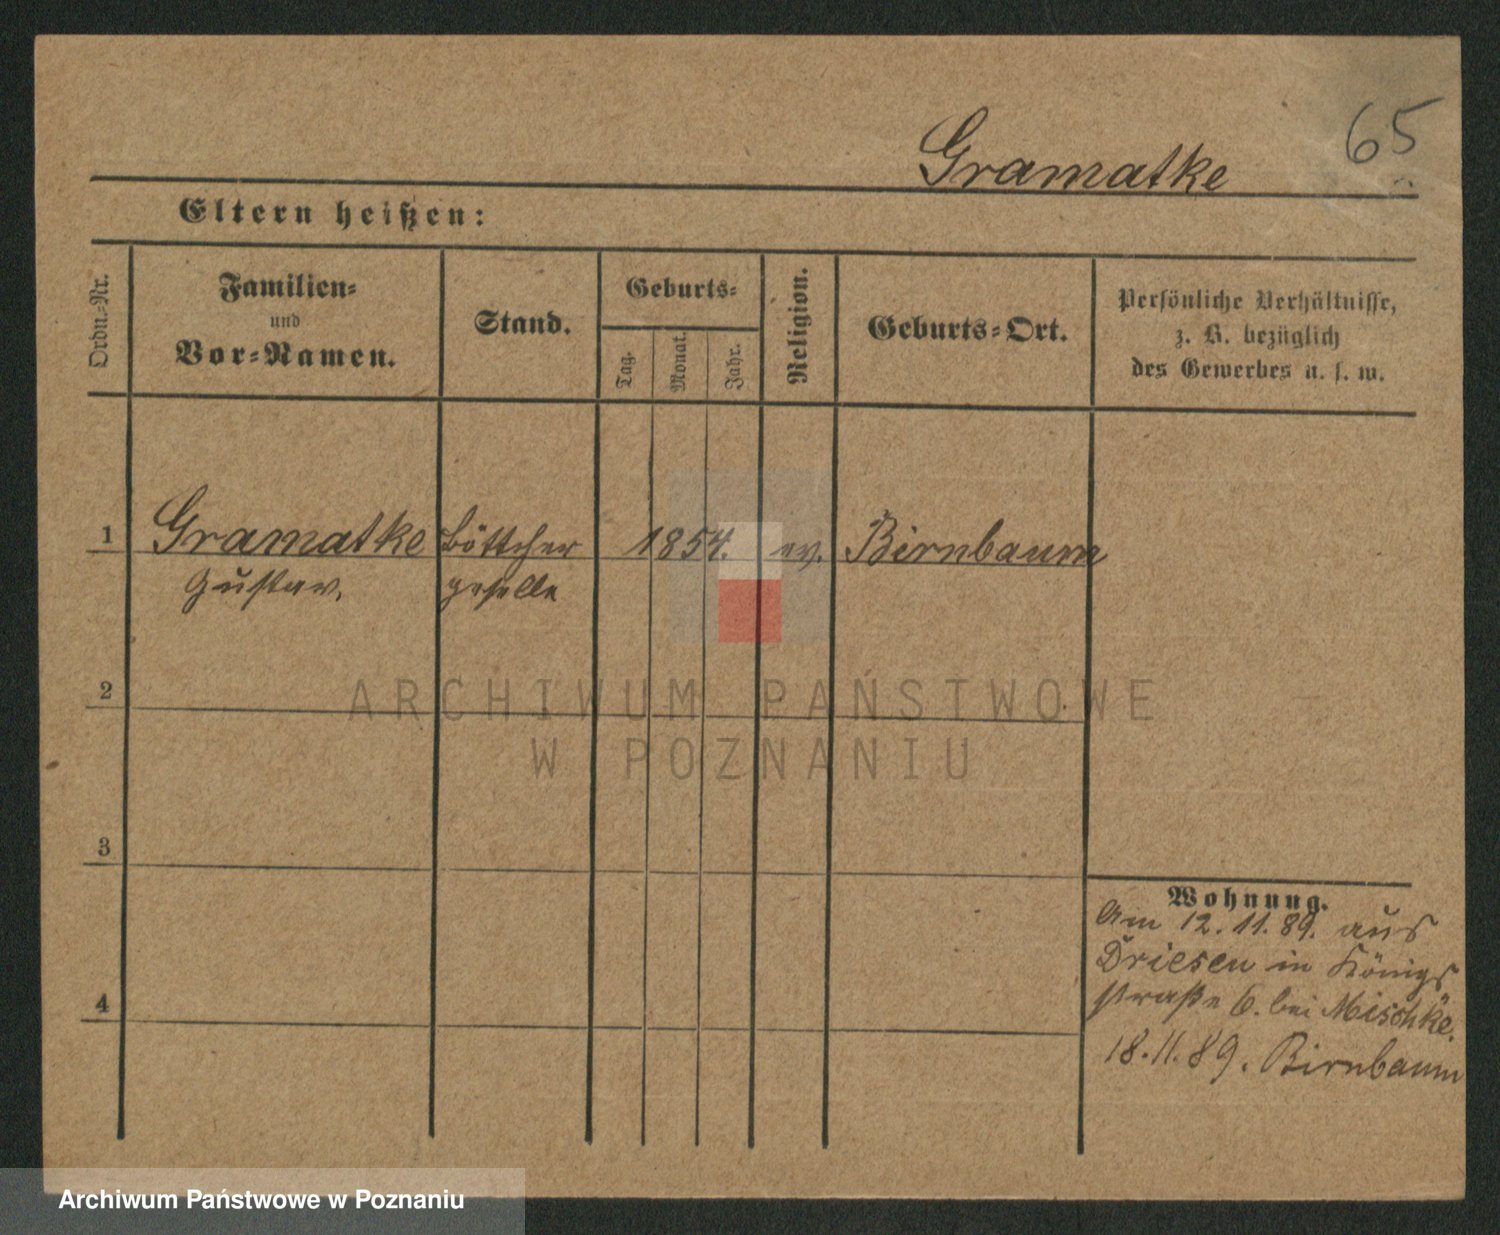 65
Gramatke
Eltern heißen:
Ordn.-Nr.
Familien-
und
Vor-Namen.
Stand.
Geburts-
Tag.
Monat.
Jahr.
Religion.
Geburts-Ort.
Persönliche Verhältnisse,
z. B. bezüglich
des Gewerbes u. s. w.
1 Gramatke Böttcher 1854. ev. Birnbaum
Gustav. geselle
2
ARCHIWUM PAŃSTWOWE
W POZNANIU
3
Wohnung.
Am 12.11.89. aus
Driesen in Königs
straße 6. bei Mischke.
4
18.11.89. Birnbaum
Archiwum Państwowe w Poznaniu